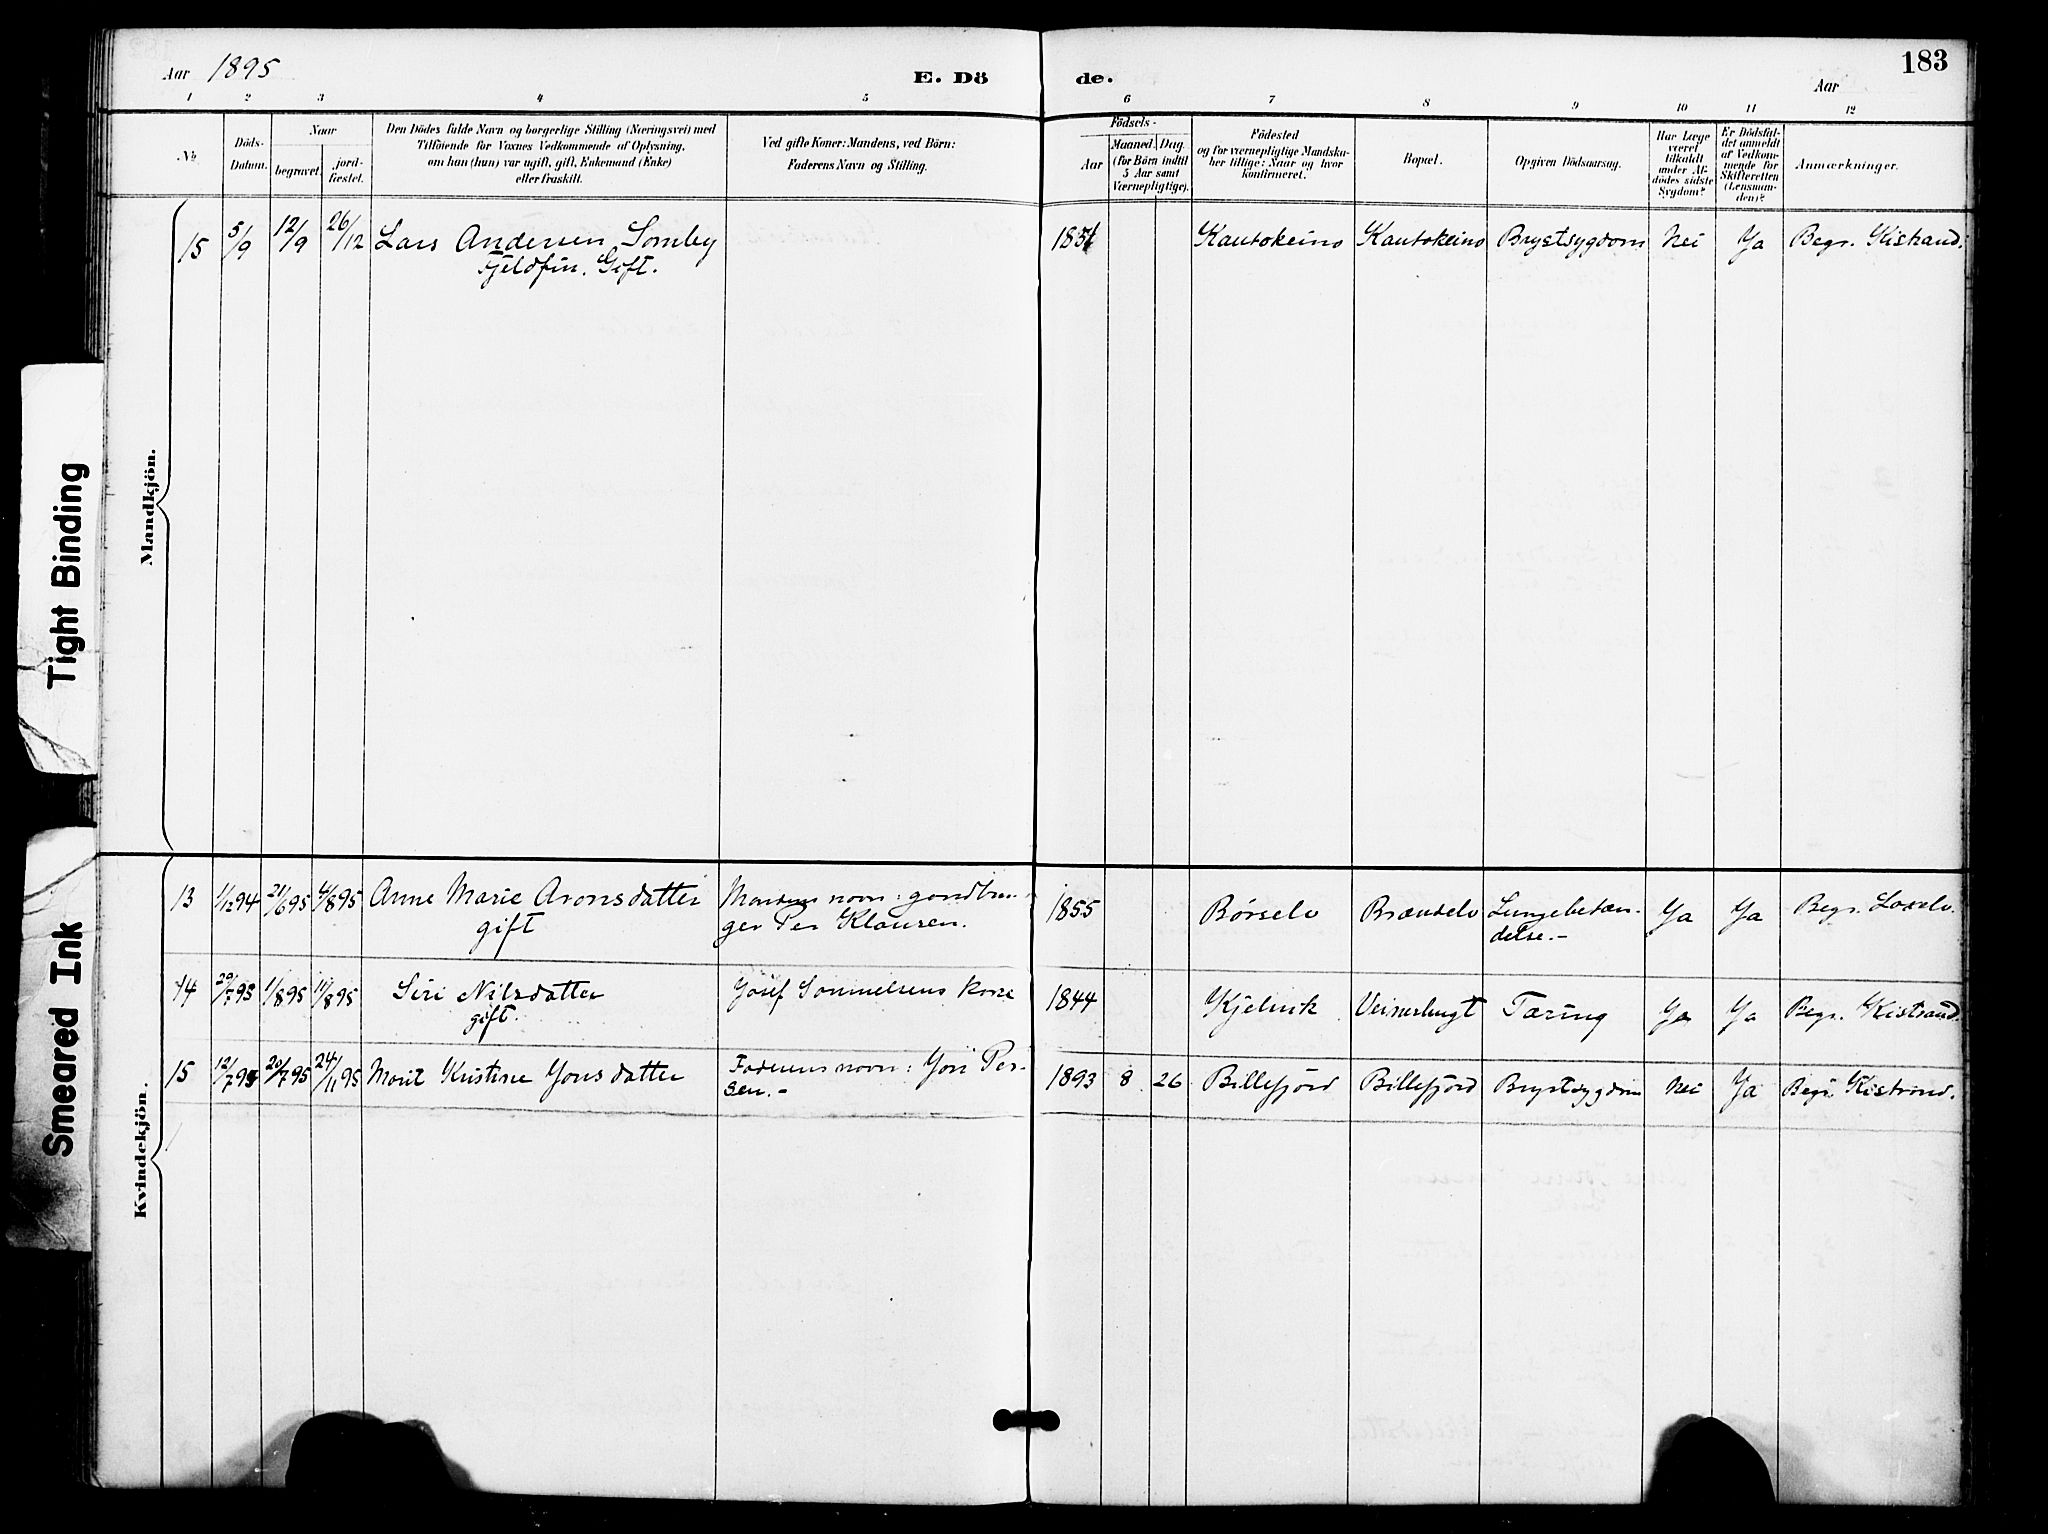 Aar 1895
E. Dö de.
Aar
183
1 2 3 4 5 6 7 8 9 10 11 12
No
Döds-
Datum.
Naar
begravet.
jord-
fæstet.
Den Dödes fulde Navn og borgerlige Stilling (Næringsvei) med
Tilföiende for Voxnes Vedkommende af Oplysning,
om han (hun) var ugift, gift, Enkemand (Enke)
eller fraskilt.
Ved gifte Koner: Mandens, ved Börn:
Faderens Navn og Stilling.
Födsels-
Aar
Maaned. Dag.
(for Börn indtil
5 Aar samt
Værnepligtige).
Födested
og for værnepligtige Mandska-
ber tillige: Naar og hvor
konfirmeret.
Bopæl.
Opgiven Dödsaarsag.
Har Læge
været
tilkaldt
under Af-
dödes sidste
Sygdom?
Er Dödsfal-
det anmeldt
af Vedkom-
mende for
Skifteretten
(Lensman-
den)?
Anmærkninger.
Mandkjön.
15 5/9 12/9 26/12 Lars Andersen Somby
Fjeldfin. Gift.
Kautokeino Kautokeino Brystsygdom Nei Ja Begr. Kistrand.
Kvindekjön.
13 1/12 94 21/6 95 4/8 95 Anne Marie Aronsdatter
gift
Mandens navn: gaardbru-
ger Per Klausen.
1855 Børselv Brændelv Lungebetæn-
delse.- Ja Ja Begr. Laxelv.
14 29/7 95 1/8 95 11/8 95 Siri Nilsdatter
gift.
Josef Sammelsens kone
1844 Kjelvik Veinesbugt Tæring Ja Ja Begr. Kistrand.
15 12/7 95 20/7 95 24/11 95 Marit Kristine Jonsdatter
Faderens navn: Jon Per-
sen.-
1893 8 26 Billefjord Billefjord Brystsygdom Nei Ja Begr. Kistrand.
Tight Binding
Smeared Ink